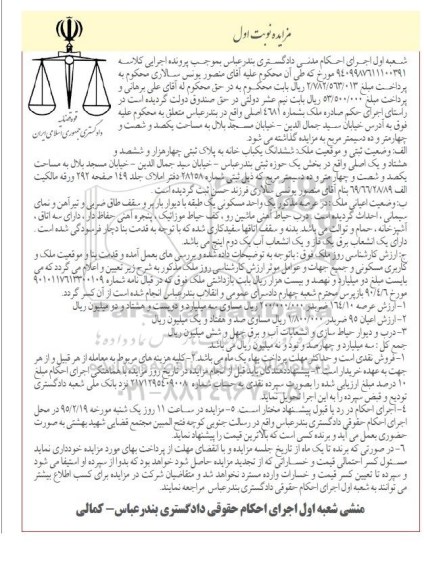 مزایده نوبت اول
قوه قضائیه
دادگستری جمهوری اسلامی ایران
شعبه اول اجرای احکام مدنی دادگستری بندرعباس بموجب پرونده اجرایی کلاسه
مورخ که طی آن محکوم علیه آقای منصور یونس سالاری محکوم به
پرداخت مبلغ ۲/۷۸۲/۵۶۳/۰۱۳ ریال بابت محکوم به در حق محکوم له آقای علی برهانی و
پرداخت مبلغ ۵۳/۵۰۰/۰۰۰ ریال بابت نیم عشر دولتی در حق صندوق دولت گردیده است در
راستای اجرای حکم صادره ملک بشماره ۴۶۸۱ اصلی واقع در بندرعباس متعلق به محکوم علیه
فوق به آدرس خیابان سید جمال الدین - خیابان مسجد بلال به مساحت یکصد و شصت و
چهار متر و ده دسیمتر مربع به مزایده گذاشته می شود.
الف: وضعیت ثبتی و موقعیت ملک: ششدانگ یکباب خانه به پلاک ثبتی چهارهزار و ششصد و
هشتاد و یک اصلی واقع در بخش یک حوزه ثبتی بندرعباس - خیابان سید جمال الدین - خیابان مسجد بلال به مساحت
یکصد و شصت و چهار متر و ده دسیمتر مربع که ذیل ثبتی شماره ۲۸۱۵۸ دفتر املاک جلد ۱۴۹ صفحه ۲۹۲ ورقه مالکیت
بنام آقای منصور یونسی سالاری فرزند حسن ثبت گردیده است.
ب: وضعیت اعیانی ملک: ملک مذکور یک واحد مسکونی یک طبقه با دیوار باربر و سقف طاق ضربی و تیرآهن و نمای
سیمانی، احداث گردیده است. درب حیاط آهنی ماشین رو، کف حیاط موزائیک، پنجره آهنی حفاظ دار، دارای سه اتاق،
آشپزخانه، حمام و توالت می باشد. بدنه و سقف اتاقها سفیدکاری شده که با توجه به قدمت بنا دچار فرسودگی شده است.
دارای یک انشعاب برق تک فاز و یک انشعاب آب یک دوم اینچ می باشد.
ج: ارزش کارشناسی روز ملک فوق: باتوجه به توضیحات داده شده و بررسی های بعمل آمده و قدمت بنا و موقعیت ملک و
کاربری مسکونی و جمیع جهات و عوامل موثر ارزش کارشناسی روز ملک مذکور به شرح زیر تعیین و اعلام می گردد که می
بایست مبلغ دو میلیارد و نهصد و بیست هزار ریال بابت بازداشتی ملک فوق که در قبال نامه شماره
مورخ ۹۰/۴/۶ بازپرس محترم شعبه چهارم دادسرای عمومی و انقلاب بندرعباس انجام شده است از آن کسر گردد.
۱- ارزش عرصه ۱۶۴/۱۰ ضربدر ریال مساوی سه میلیارد و دویست و هشتاد و دو میلیون ریال
۲- ارزش اعیان ۹۵ ضربدر ۱/۸۰۰/۰۰۰ ریال مساوی صد و هفتاد و یک میلیون ریال
۳- درب و دیوار حیاط سازی و انشعابات آب و برق چهل و شش میلیون ریال
جمع کل: سه میلیارد و چهارصد و نود و نه میلیون ریال می باشد.
۱- فروش نقدی است و حداکثر مهلت پرداخت بهاء یک ماه می باشد ۲- کلیه هزینه های مربوط به معامله از هر قبیل و از هر
جهت به عهده خریدار است ۳- پیشنهاد دهندگان باید قبل از انجام مزایده در تاریخ روز مزایده با هماهنگی اجرای احکام مبلغ
۱۰ درصد مبلغ ارزیابی شده را بصورت سپرده نقدی به حساب شماره ۲۱۷۱۲۹۵۴۰۹۰۰۸ نزد بانک ملی شعبه دادگستری
تودیع و قبض سپرده را به این اجرا تحویل نماید.
۴- اجرای احکام در رد یا قبول پیشنهاد مختار است ۵- مزایده در ساعت ۱۱ روز یک شنبه مورخه ۹۵/۲/۱۹ در محل
اجرای احکام حقوقی دادگستری بندرعباس واقع در رسالت جنوبی کوچه فتح المبین مجتمع قضایی شهید بهشتی به صورت
حضوری بعمل می آید و برنده کسی است که بالاترین قیمت را پیشنهاد نماید
۶- در صورتی که برنده تا یک ماه از تاریخ جلسه مزایده و با انقضای مهلت از پرداخت بهای مورد مزایده خودداری نماید
مسئول کسر احتمالی قیمت و خساراتی که از تجدید مزایده حاصل شود خواهد بود که بدوا از سپرده او استیفا می شود
و سپرده تا تعیین کسر قیمت و خسارات وارده مسترد نخواهد شد و متقاضیان شرکت در مزایده برای کسب اطلاع بیشتر
می توانند به شعبه اول اجرای احکام حقوقی دادگستری بندرعباس مراجعه نمایند.
منشی شعبه اول اجرای احکام حقوقی دادگستری بندرعباس - کمالی